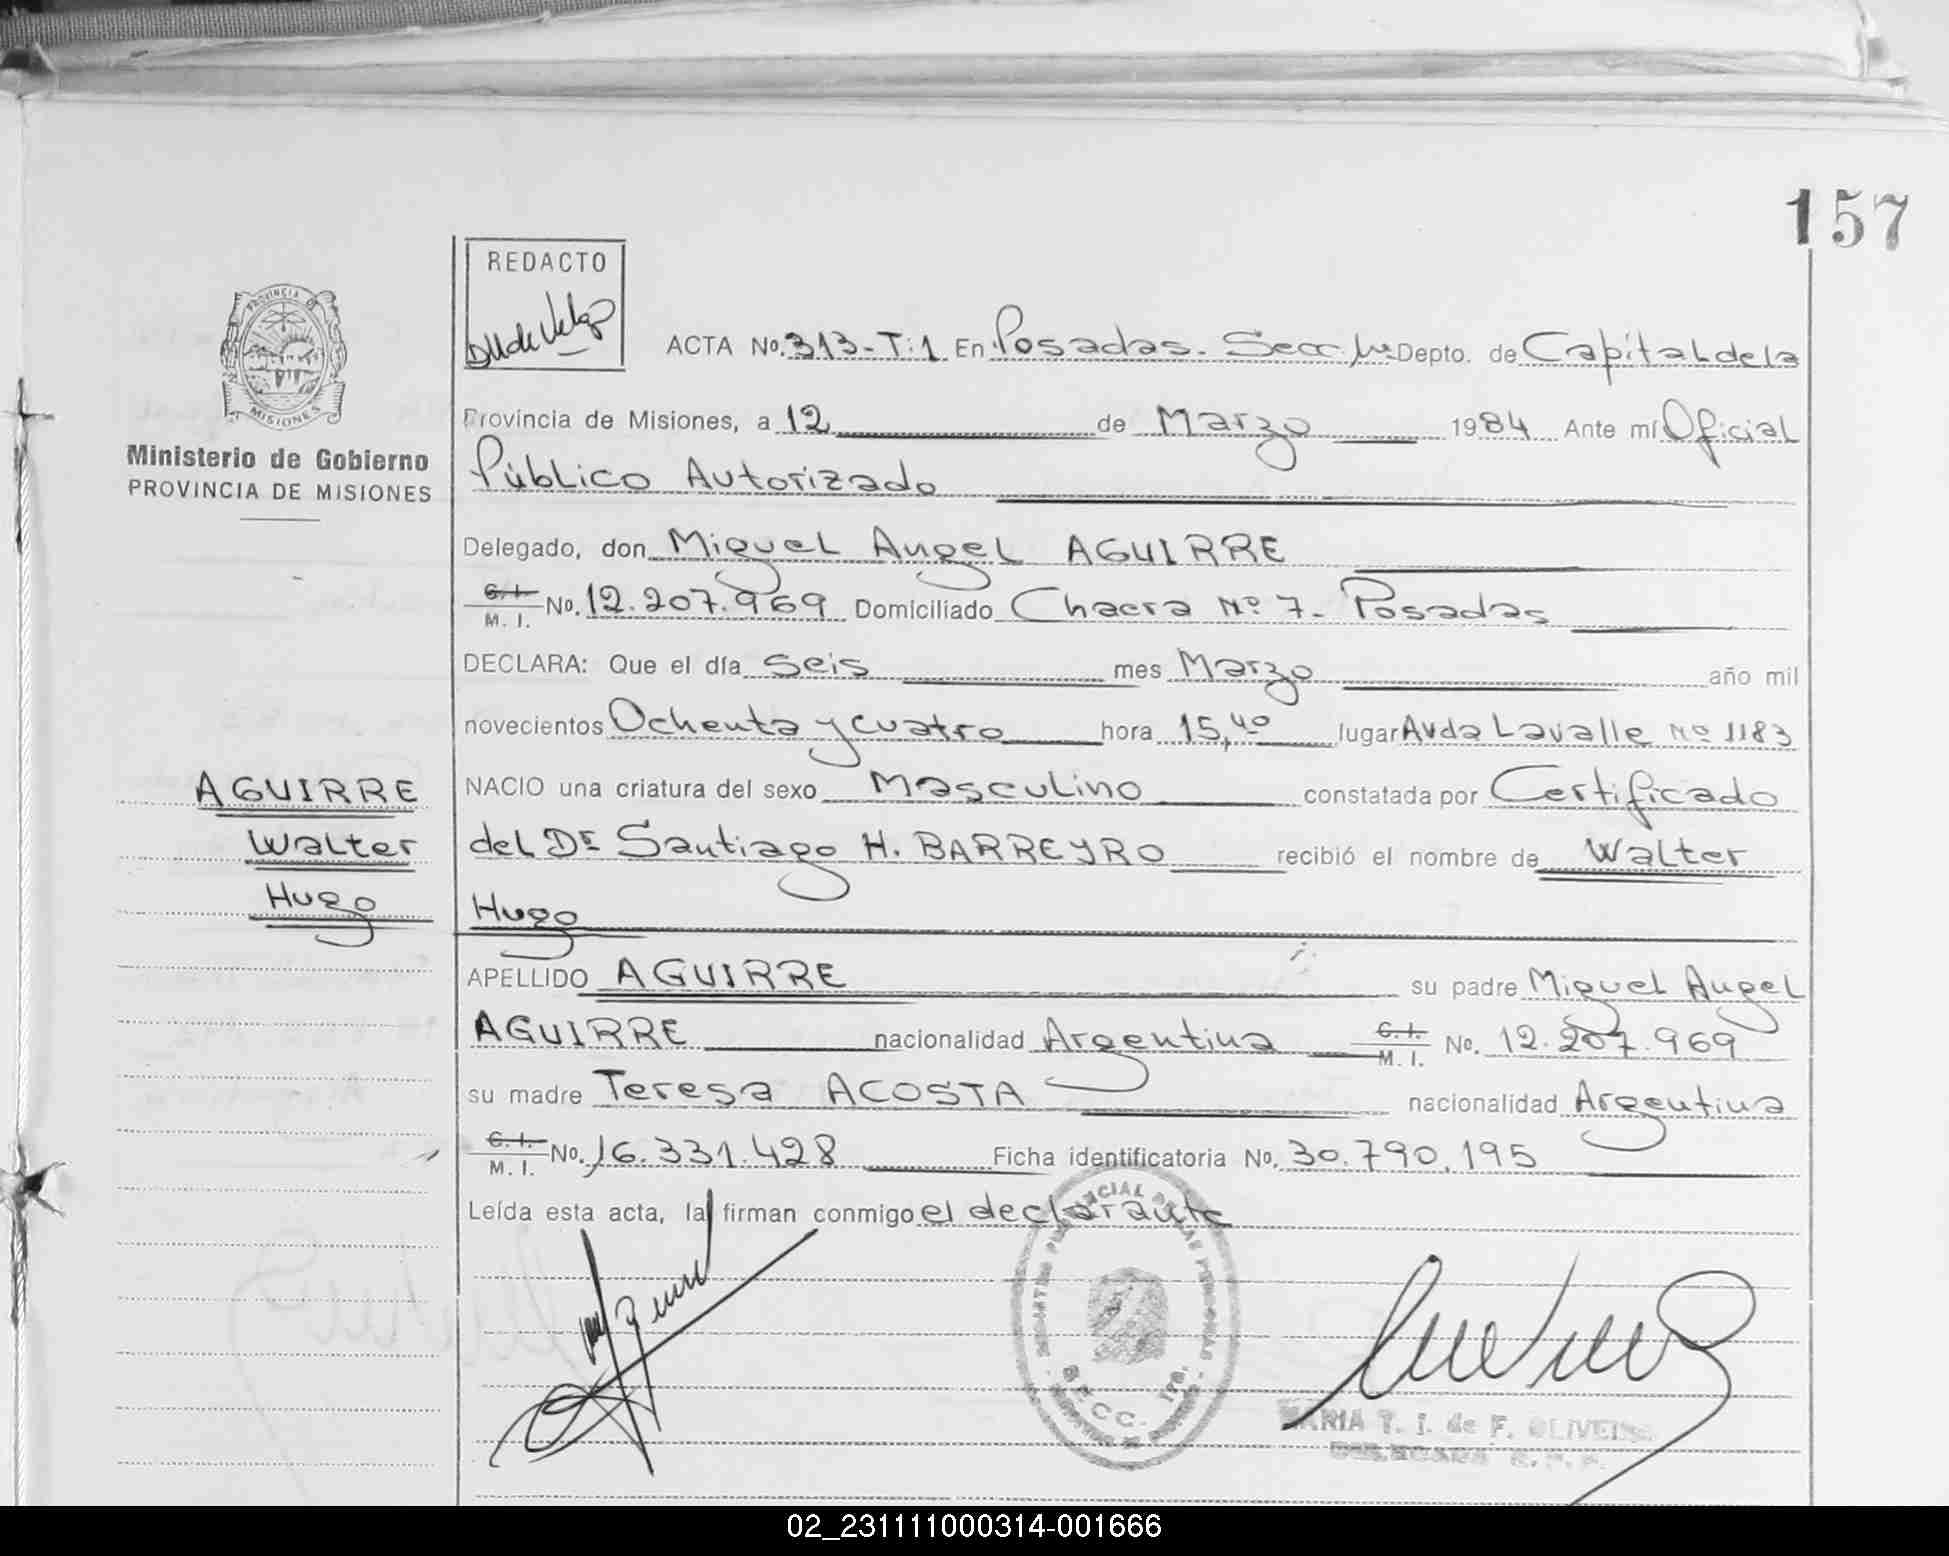 157
REDACTO
PROVINCIA DE
MISIONES
Ministerio de Gobierno
PROVINCIA DE MISIONES
ACTA No. 313-T:1 En Posadas. Secc. 1ra Depto. de Capital de la
Provincia de Misiones, a 12 de Marzo 1984 Ante mí Oficial
Público Autorizado
Delegado, don Miguel Angel AGUIRRE
C.I. M. I. No. 12.207.969 Domiciliado Chacra Nº 7- Posadas
DECLARA: Que el día Seis mes Marzo año mil
novecientos Ochenta y cuatro hora 15,40 lugar Avda Lavalle Nº 1183
AGUIRRE
Walter
Hugo
NACIO una criatura del sexo Masculino constatada por Certificado
del Dr Santiago H. BARREYRO recibió el nombre de Walter
Hugo
APELLIDO AGUIRRE su padre Miguel Angel
AGUIRRE nacionalidad Argentina C.I. M. I. No. 12.207.969
su madre Teresa ACOSTA nacionalidad Argentina
C.I. M. I. No. 16.331.428 Ficha identificatoria No. 30.790.195
Leída esta acta, la firman conmigo el declarante
SECC. 1ra.
MARIA T. I. de F. OLIVEIRA
02_231111000314-001666